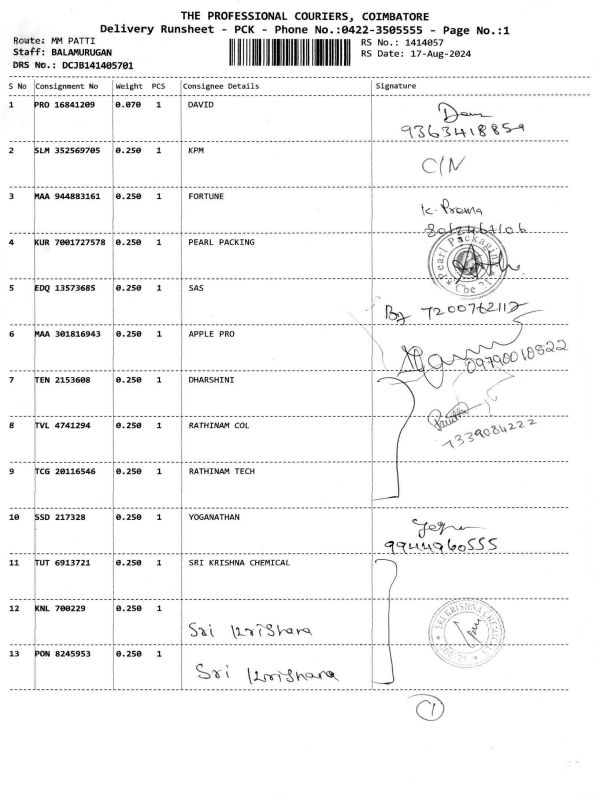 THE PROFESSIONAL COURIERS, COIMBATORE
Delivery Runsheet - PCK - Phone No.:0422-3505555 - Page No.:1
Route: MM PATTI
Staff: BALAMURUGAN
DRS No.: DCJB141405701
RS No.: 1414057
RS Date: 17-Aug-2024
S No Consignment No Weight PCS Consignee Details Signature
1 PRO 16841209 0.070 1 DAVID
9363418859
2 SLM 352569705 0.250 1 KPM C/N
3 MAA 944883161 0.250 1 FORTUNE K. Prema
4 KUR 7001727578 0.250 1 PEARL PACKING
Pearl Packaging
Cbe 21
5 EDQ 13573685 0.250 1 SAS
7200762112
6 MAA 301816943 0.250 1 APPLE PRO
09790010822
7 TEN 2153608 0.250 1 DHARSHINI
8 TVL 4741294 0.250 1 RATHINAM COL
7339084222
9 TCG 20116546 0.250 1 RATHINAM TECH
10 SSD 217328 0.250 1 YOGANATHAN
9944960555
11 TUT 6913721 0.250 1 SRI KRISHNA CHEMICAL
12 KNL 700229 0.250 1
Sri Krishana
SRI KRISHNA CHEMICALS
CBE-21
13 PON 8245953 0.250 1
Sri Krishana